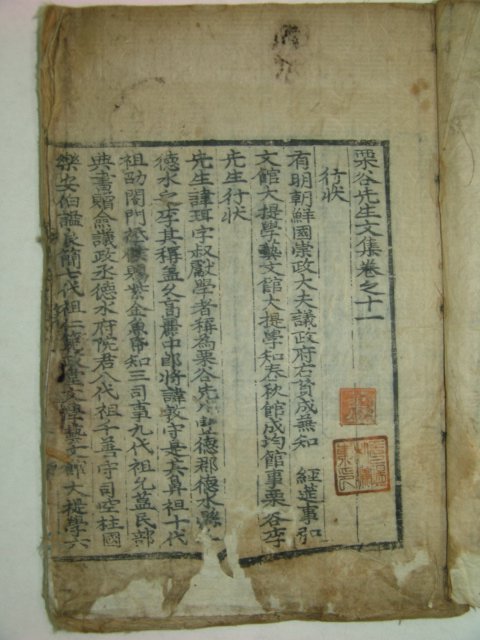 栗谷先生文集卷之十一
行狀
有明朝鮮國崇政大夫議政府右賛成兼知 經筵事弘
文館大提學藝文館大提學知春秋館成均館事栗谷李
先生行狀
先生諱珥字叔獻學者稱為栗谷先生德郡德水縣人
德水之李其稱蓋久高麗中郎將諱敦守是其鼻祖十代
祖劭閤門祗候賜紫金魚帒知三司事九代祖允蒀民部
典書贈僉議政丞德水府院君八代祖千善守司空柱國
樂安伯諡良簡七代祖仁範 文館大提學六